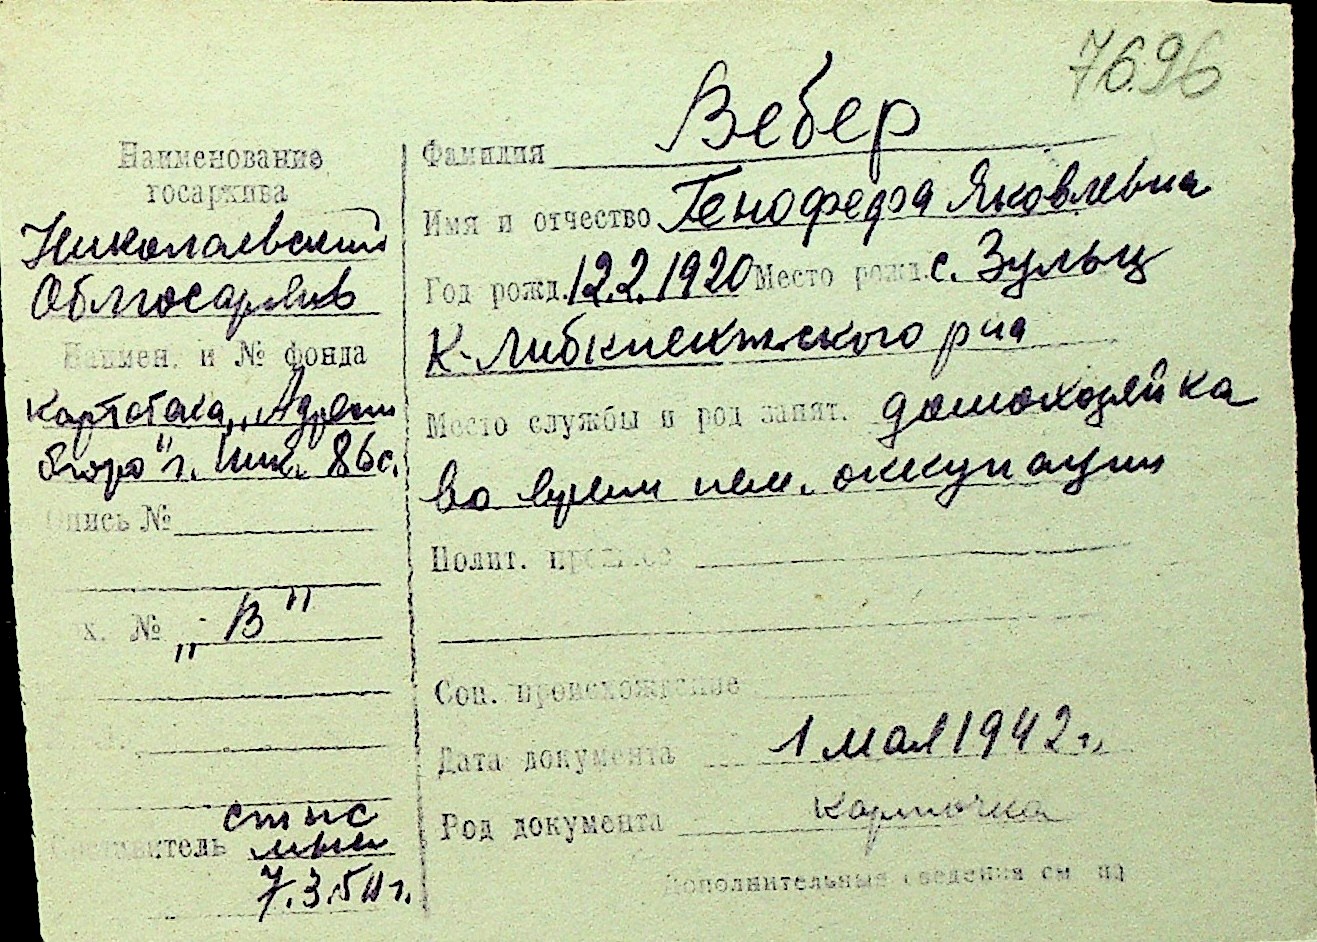 7696
Наименование
госархива
Николаевский
Облгосархив
Наимен. и № фонда
Картотека „Адресн
бюро" г. Ник. 86с.
Опись №
х. № „В"
Составитель
7.3.50 г.
Фамилия Вебер
Имя и отчество Генофефа Яковлевна
Год рожд. 12.2.1920 Место рожд. с. Зульц
К-Либкнехтского р-на
Место службы и род занят. домохозяйка
во время нем. оккупации
Полит. процесс
Соц. происхождение
Дата документа 1 мая 1942 г.
Род документа карточка
Дополнительные сведения см на